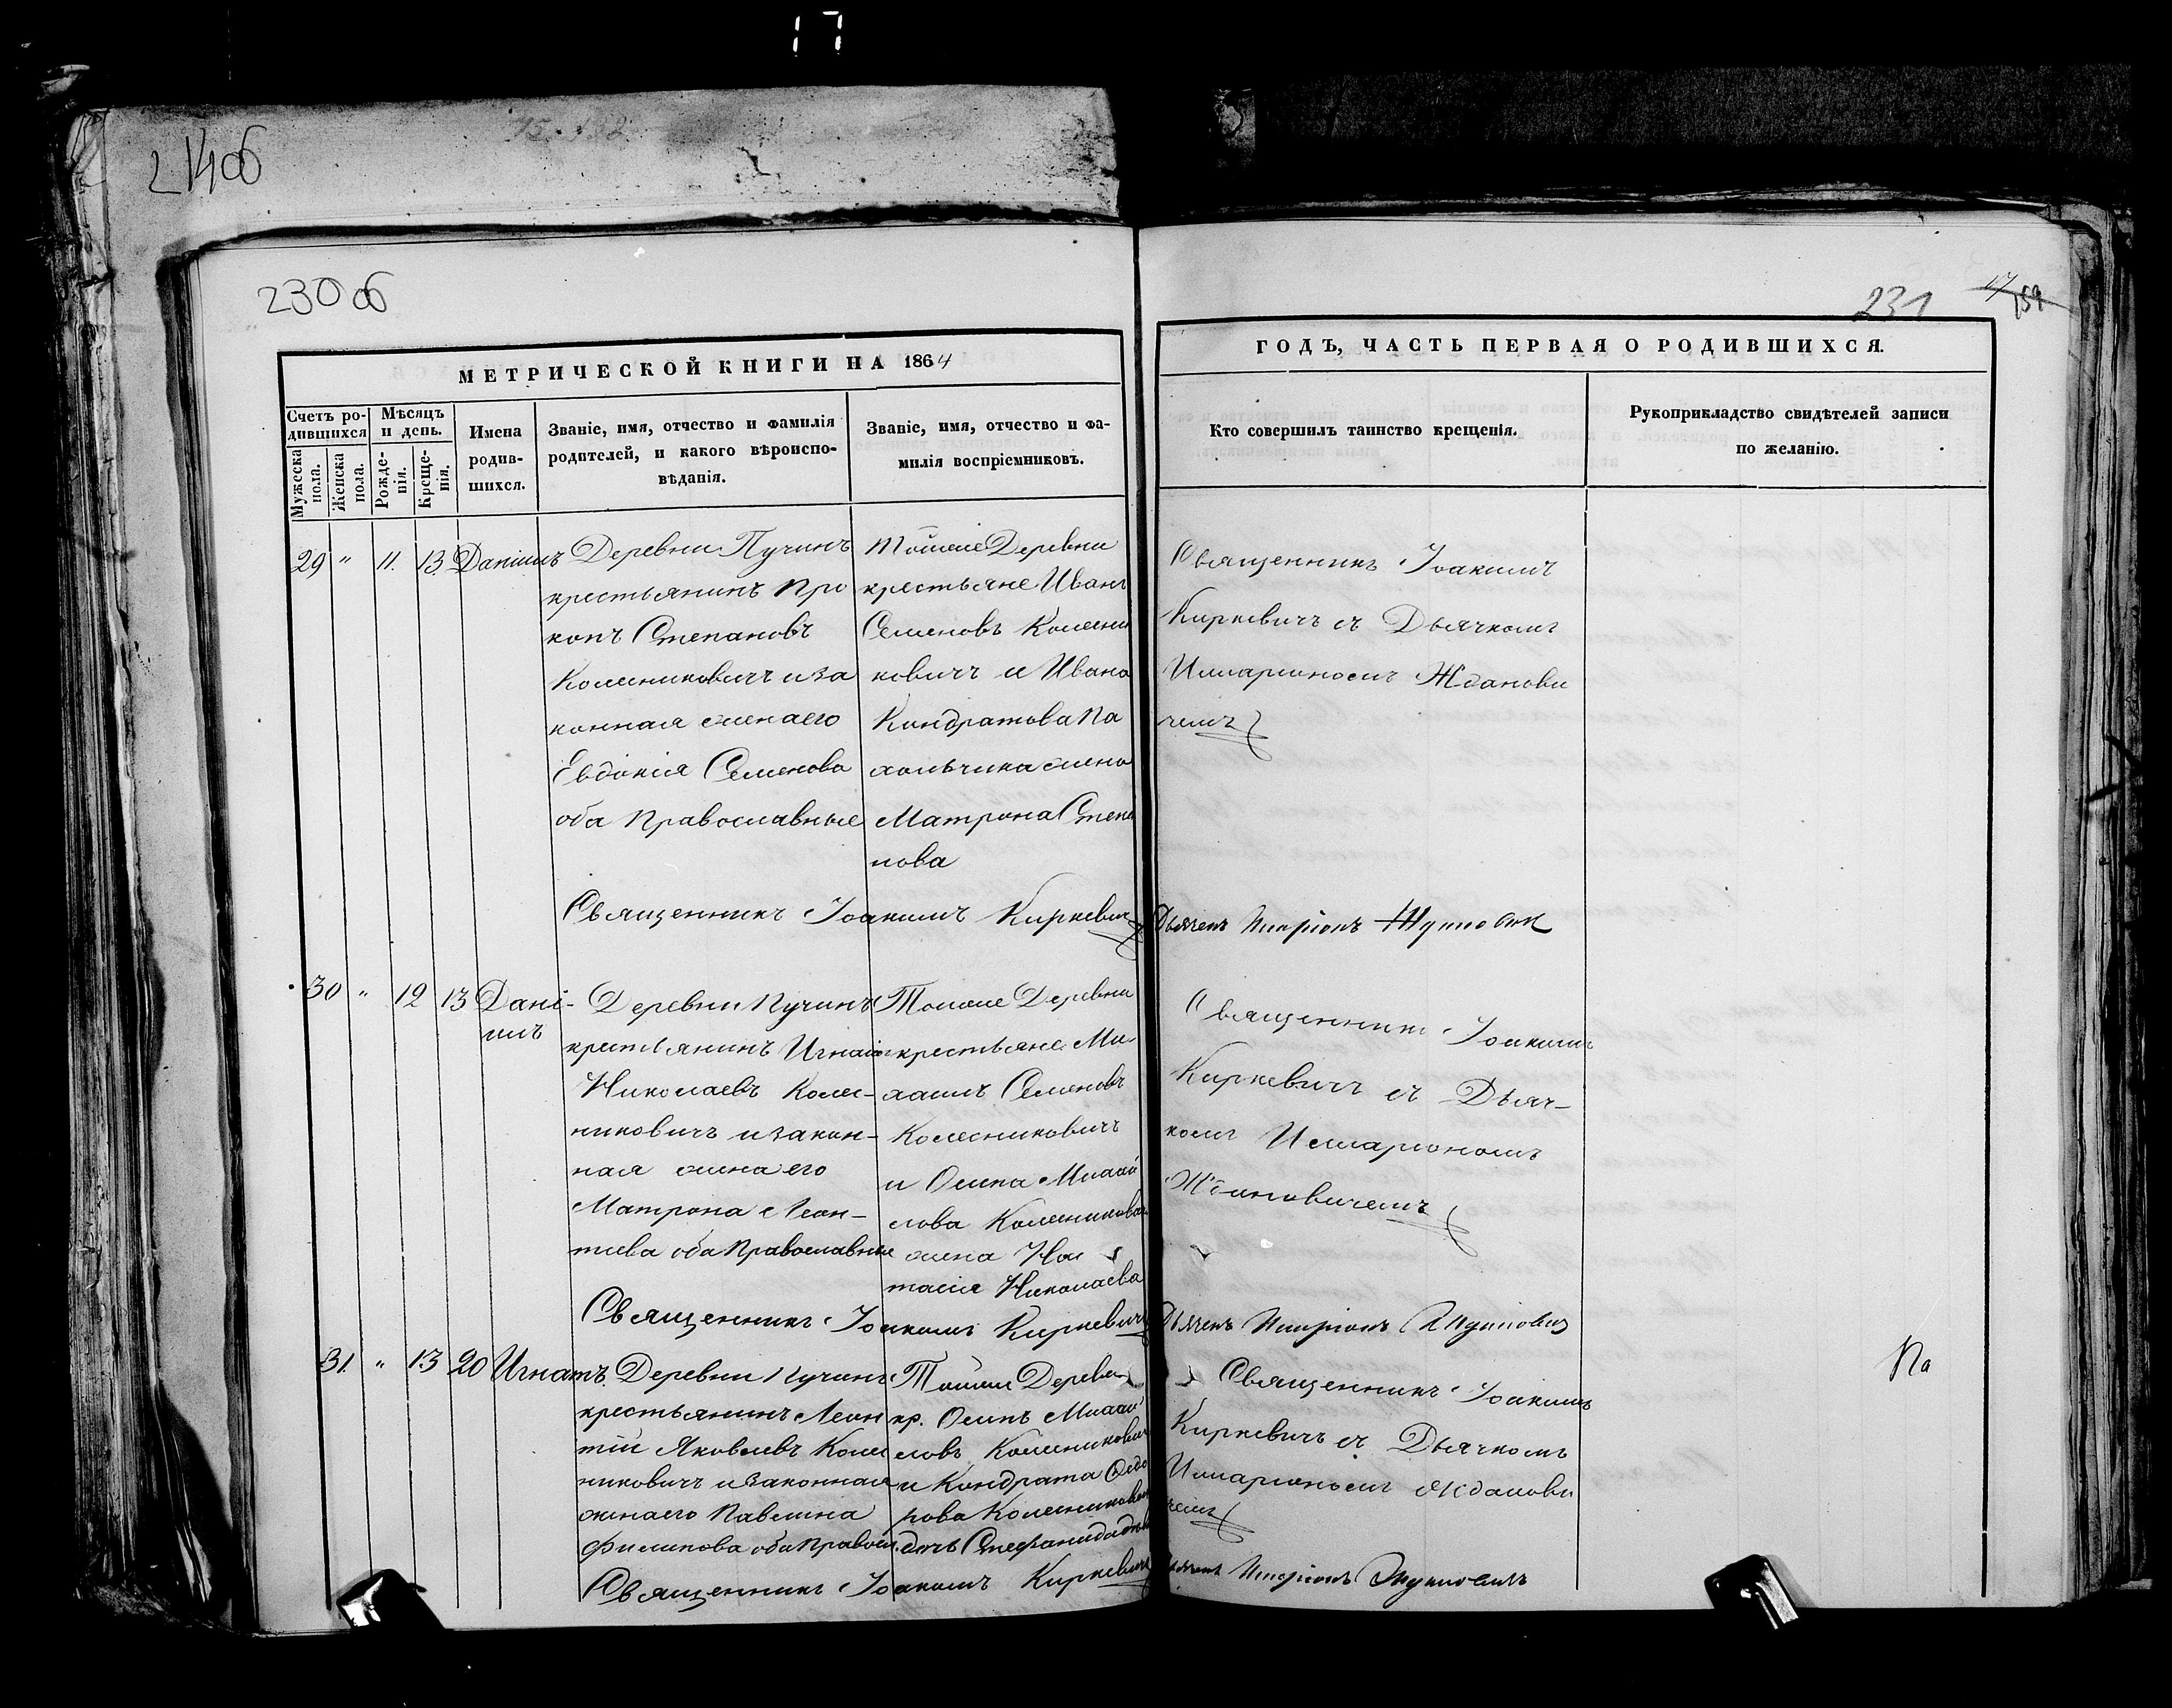 17
214 об
230 об
231
17
159
МЕТРИЧЕСКОЙ КНИГИ НА 1864
ГОДЪ, ЧАСТЬ ПЕРВАЯ О РОДИВШИХСЯ.
Счетъ ро-
дившихся
Мужеска
пола.
Женска
пола.
Мѣсяцъ
и день.
Рожде-
нія.
Креще-
нія.
Имена
родив-
шихся.
Званіе, имя, отчество и фамилія
родителей, и какого вѣроиспо-
вѣданія.
Званіе, имя, отчество и фа-
милія воспріемниковъ.
Кто совершилъ таинство крещенія.
Рукоприкладство свидѣтелей записи
по желанію.
29 " 11. 13. Даніилъ
Деревни Пучинъ
крестьянинъ Про
копъ Степановъ
Колесниковичъ и за
конная жена его
Евдокія Семенова
оба Православные
Тойже Деревни
крестьяне Иванъ
Семеновъ Колесни
ковичъ и Ивана
Кондратова Па
хольчика жена
Матрона Степа
нова
Священникъ Іоакимъ
Киркевичъ съ Дьячкомъ
Илларіономъ Жданови
чемъ
Священникъ Іоакимъ Киркевич
Дьячекъ
30 " 12 13 Дані-
илъ
Деревни Пучинъ
крестьянинъ Игнатъ
Николаевъ Колес-
никовичъ и закон-
ная жена его
Матрона Леон-
тиева оба Православные
Тойже Деревни
крестьяне Ми
хаилъ Семеновъ
Колесниковичъ
и Осипа Михай
лова Колесникова
жена Нас
тасія Николаева
Священникъ Іоакимъ
Киркевичъ съ Дьяч-
комъ Илларіономъ
Ждановичемъ
Священникъ Іоакимъ Киркевичъ
Дьячекъ
31. " 13 20 Игнатъ.
Деревни Пучинъ
крестьянинъ Леон
тій Яковлевъ Колес
никовичъ и законная
жена его Павлина
Филипова оба Правосл.
Тойже Деревни
кр. Осипъ Михай
ловъ Колесникович
и Кондрата Федо
рова Колесникова
дочь Стефанида
Священникъ Іоакимъ
Киркевичъ съ Дьячкомъ
Илларіономъ Жданови
чемъ
По
Священникъ Іоакимъ Киркевичъ